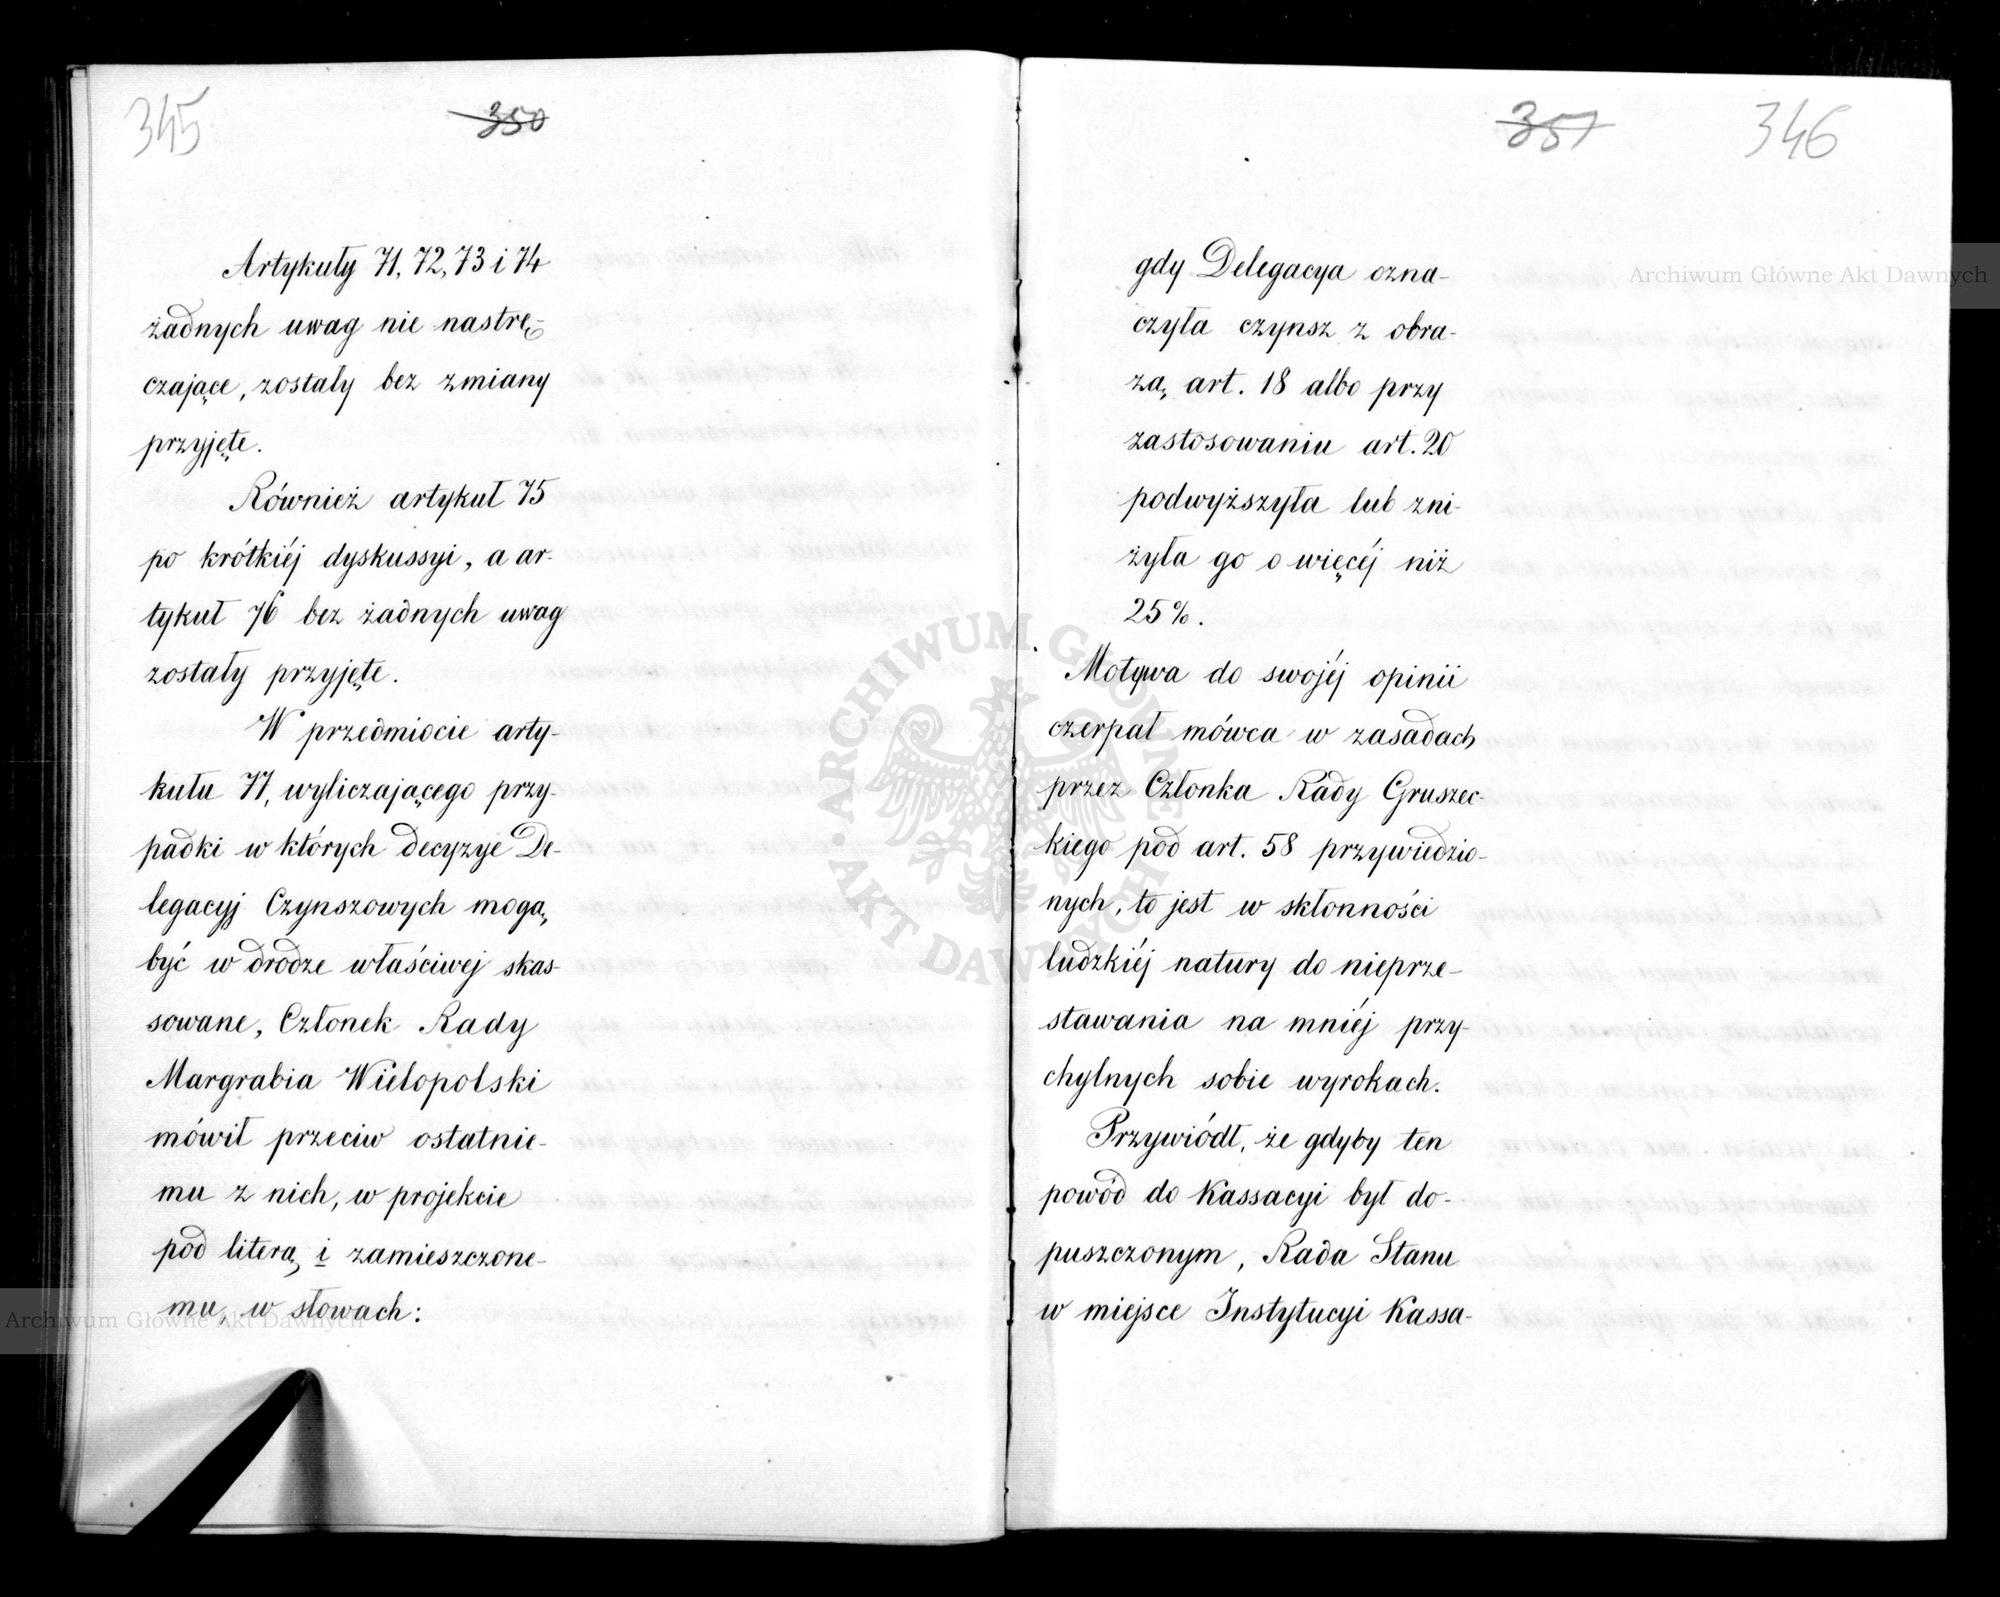 345
350
Artykuły 71, 72, 73 i 74
żadnych uwag nie nastrę-
czające, zostały bez zmiany
przyjęte.
Również artykuł 75
po krótkiéj dyskussyi, a ar-
tykuł 76 bez żadnych uwag
zostały przyjęte.
W przedmiocie arty-
kułu 77, wyliczającego przy-
padki w których decyzye De-
legacyj Czynszowych mogą
być w drodze właściwej skas-
sowane, Członek Rady
Margrabia Wielopolski
mówił przeciw ostatnie-
mu z nich, w projekcie
pod literą i zamieszczone-
mu, w słowach:
351
346
gdy Delegacya ozna-
czyła czynsz z obra-
zą art. 18 albo przy
zastosowaniu art. 20
podwyższyła lub zni-
żyła go o więcéj niż
25%.
Motywa do swojéj opinii
czerpał mówca w zasadach
przez Członka Rady Gruszec-
kiego pod art. 58 przywiedzio-
nych, to jest w skłonności
ludzkiéj natury do nieprze-
stawania na mniéj przy-
chylnych sobie wyrokach.
Przywiódł, że gdyby ten
powód do Kassacyi był do-
puszczonym, Rada Stanu
w miejsce Instytucyi Kassa-
Archiwum Główne Akt Dawnych
Archiwum Główne Akt Dawnych
ARCHIWUM GŁÓWNE AKT DAWNYCH